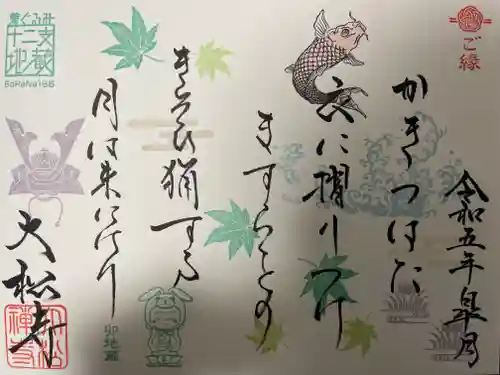 ご縁
令和五年皐月
かきつはた
衣に摺りつけ
ますらをの
きそひ猟する
月は来にけり
大松寺
着ぐるみ
十二支
地蔵
卯地蔵